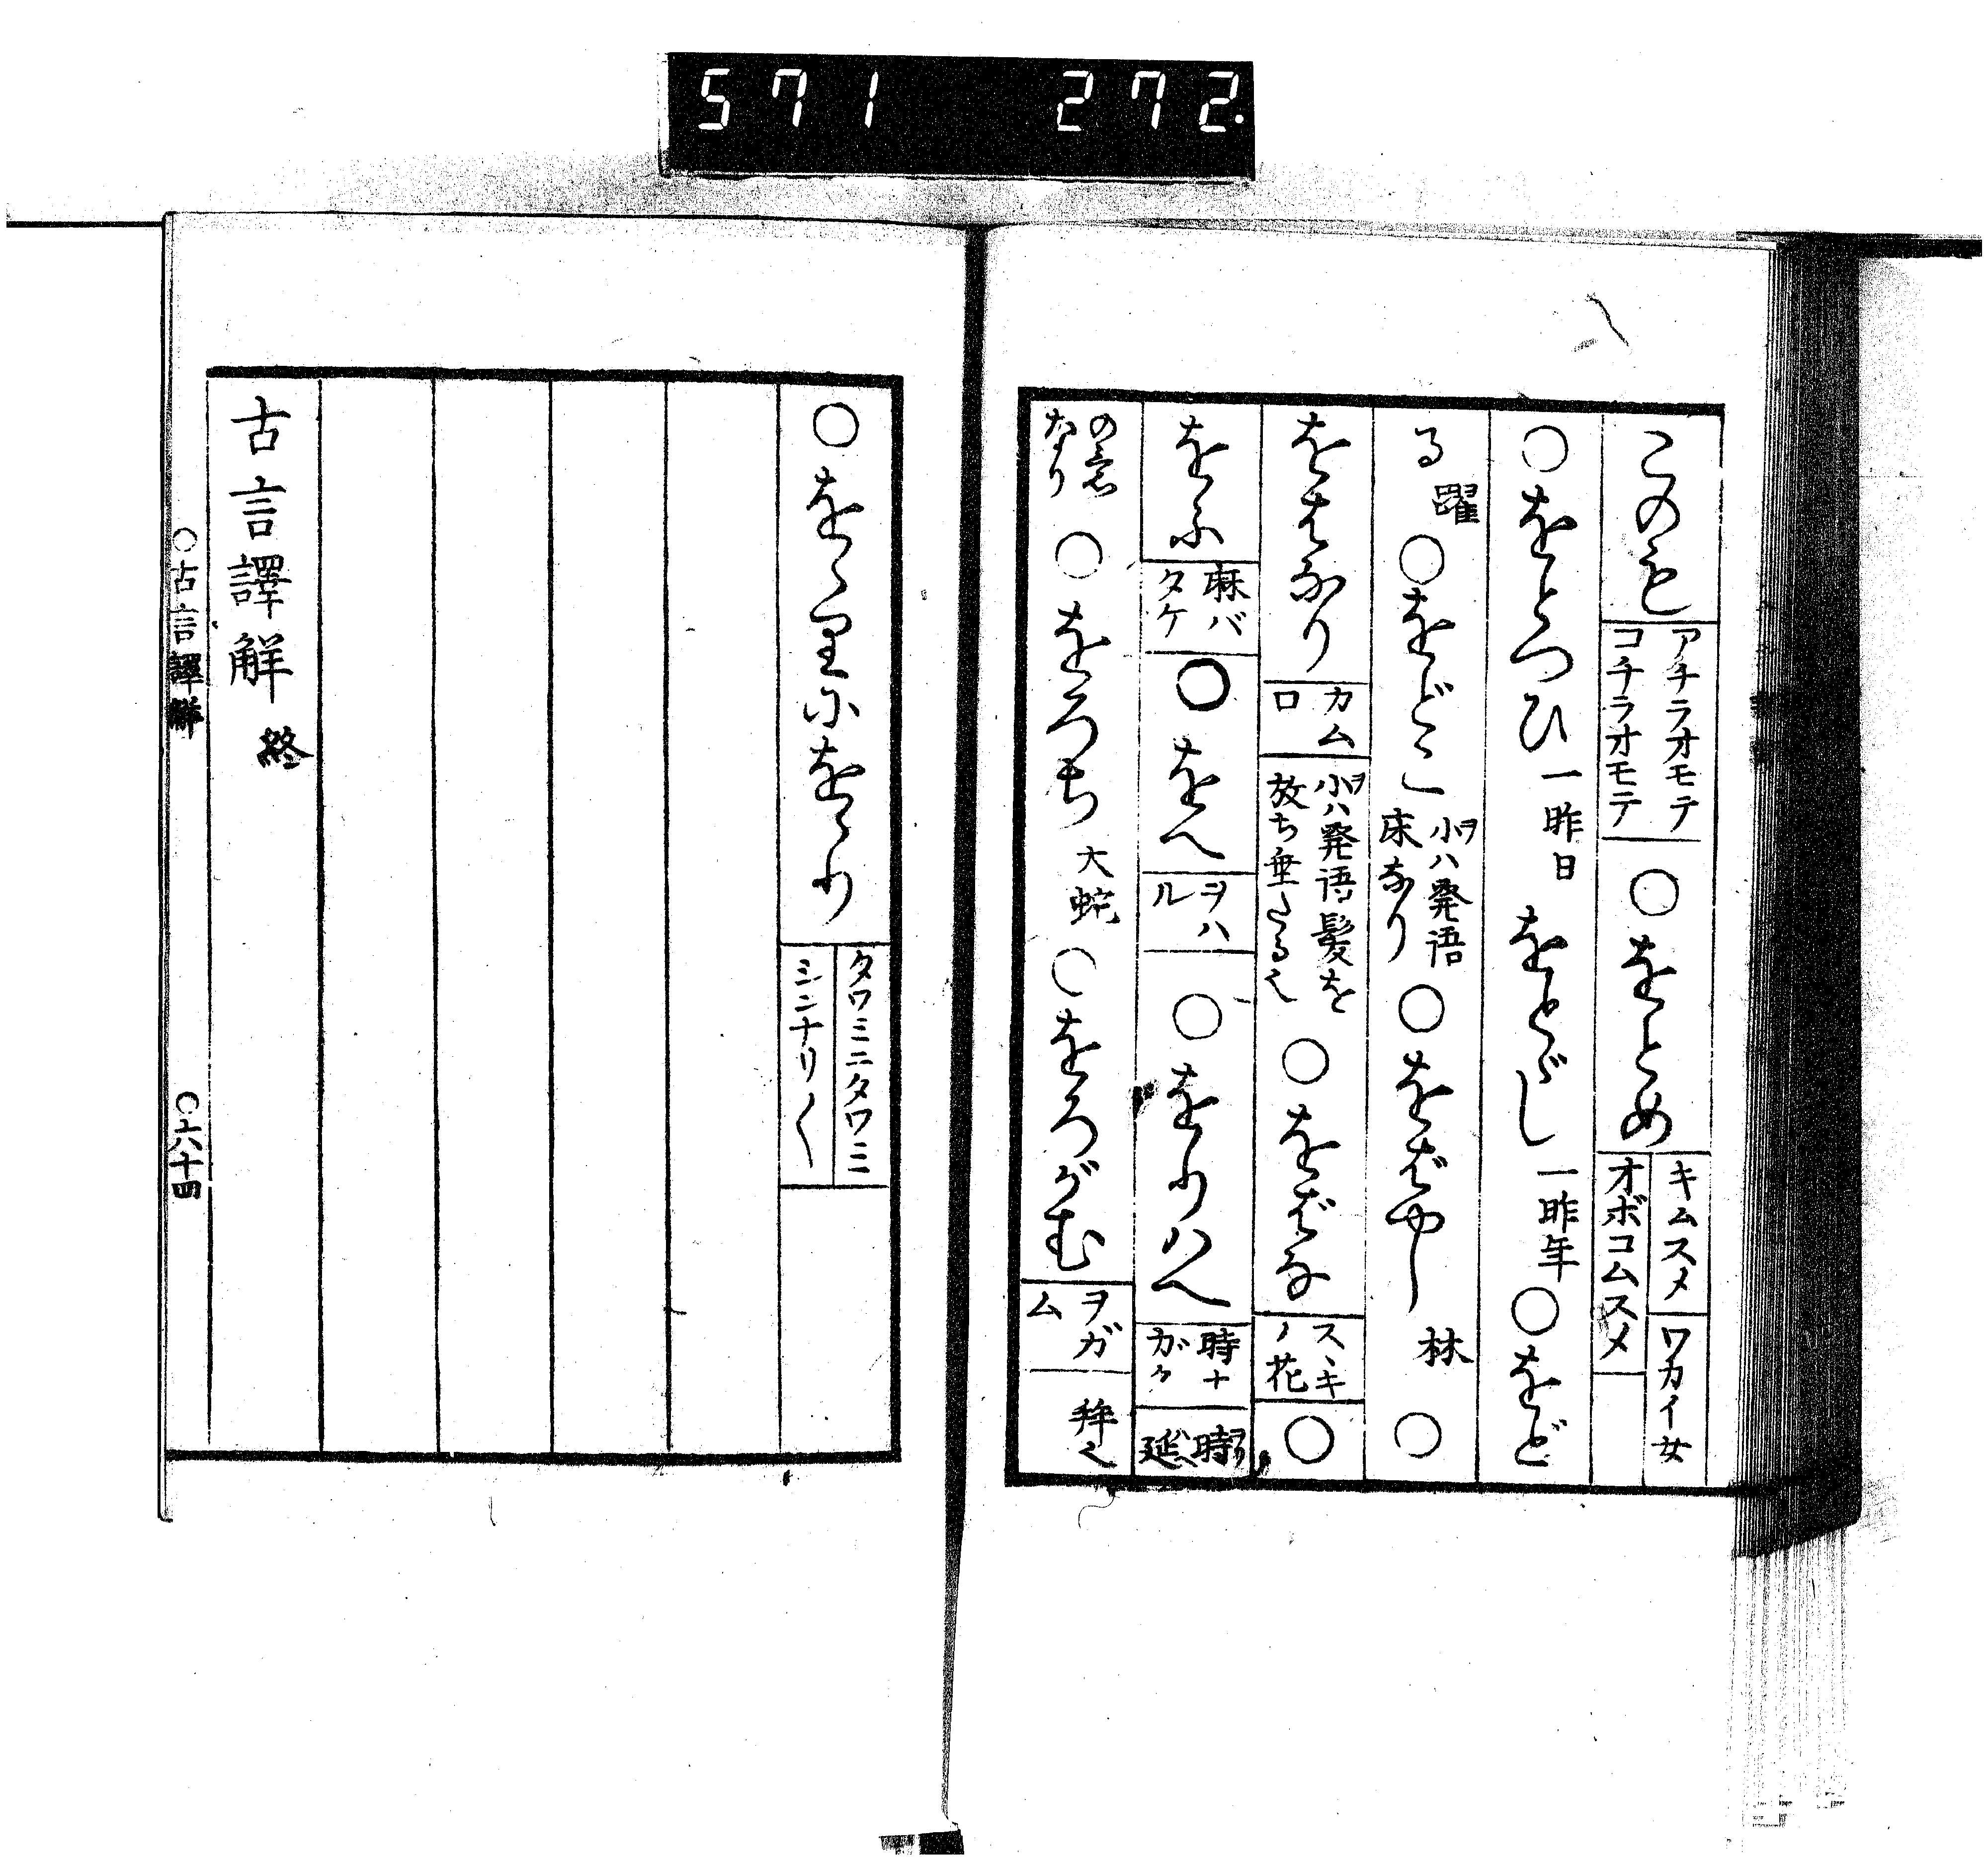 571 272.
このも アチラオモテ コチラオモテ ○をとめ キムスメ オボコムスメ ワカイ女
○をとつひ 一昨日 をとゝじ 一昨年 ○をど
る 躍 ○をどこ 小ハ発語 床なり ○をばやし 林 ○
をはなり カムロ 小ハ発語髪を放ち垂たる也 ○をばな スヽキノ花 ○
をふ 麻バタケ ○をへ ヲハル ○をりはへ 時ナガク 時延
の意なり ○をろち 大蛇 ○をろがむ ヲガム 拝也
○をゝりにをゝり タワミニタワミ シニナリ〱
古言譯解 終
○古言譯解 ○六十四